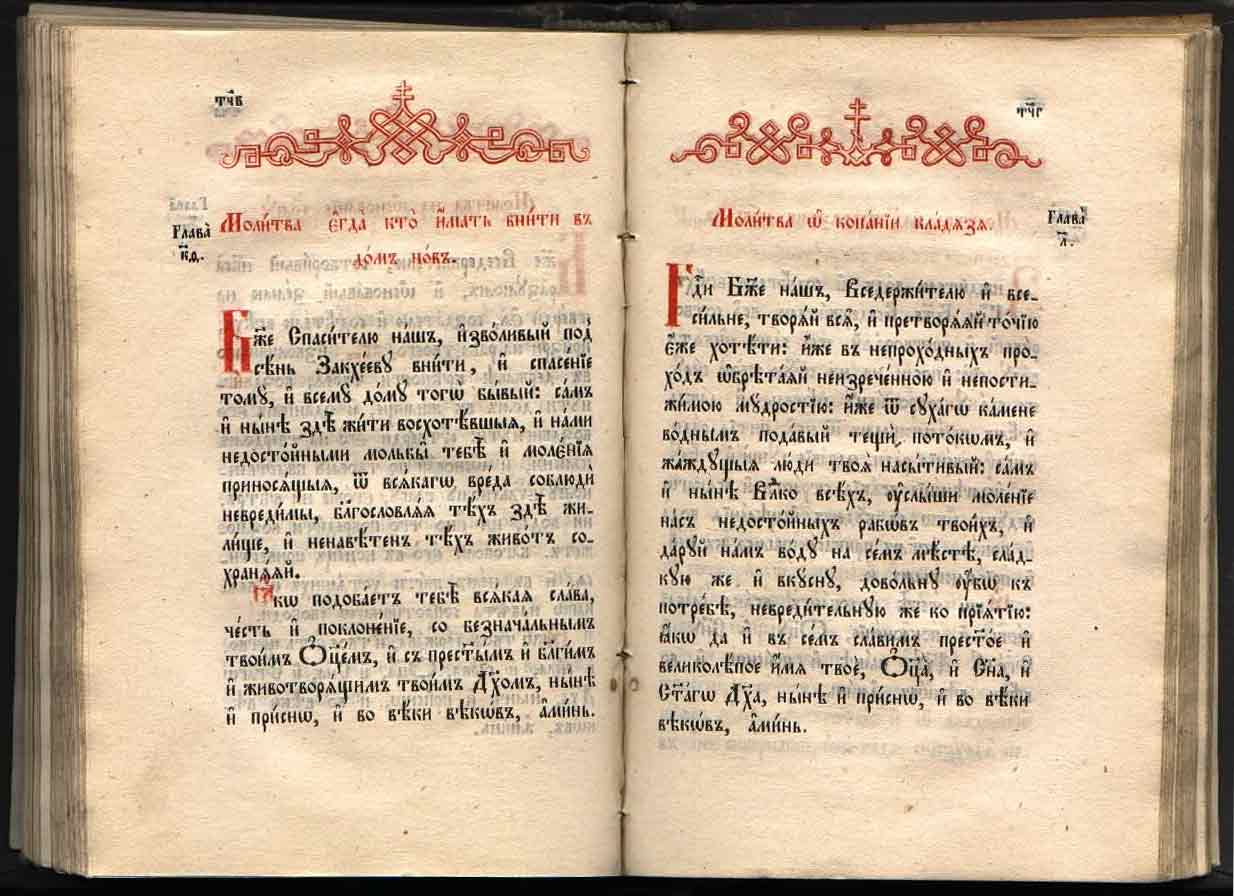 тч҃в
Моли́тва є҆гда̀ кто̀ и҆́мать вни́ти въ
до́мъ но́въ.
Глава̀
к҃ѳ.
Бж҃е Спаси́телю на́шъ, и҆зво́ливый под̾
сѣ́нь Закхе́еву вни́ти, и҆ спасе́нїе
тому̀, и҆ всемꙋ̀ до́мꙋ тогѡ̀ бы́вый: са́мъ
и҆ ны́нѣ здѣ̀ жи́ти восхотѣ́вшыѧ, и҆ на́ми
недосто́йными мольбы̀ тебѣ̀ и҆ моле́нїѧ
принося́щыѧ, ѿ всѧ́кагѡ вреда̀ соблюдѝ
невреди́мы, блгⷭ҇ословлѧ́ѧ тѣ́хъ здѣ̀ жи-
ли́ще, и҆ ненавѣ́тенъ тѣ́хъ живо́тъ со-
хранѧ́ѧй.
Ꙗ҆́кѡ подоба́етъ тебѣ̀ всѧ́каѧ сла́ва,
че́сть и҆ поклоне́нїе, со безнача́льнымъ
твои́мъ Ѻ҆ц҃е́мъ, и҆ съ прест҃ы́мъ и҆ бл҃ги́мъ
и҆ животворѧ́щимъ твои́мъ Дх҃омъ, ны́нѣ
и҆ при́снѡ, и҆ во вѣ́ки вѣкѡ́въ, а҆ми́нь.
тч҃г
Моли́тва ѡ҆ копа́нїи кла́дѧзѧ.
Глава̀
л҃.
Гдⷭ҇и Бж҃е на́шъ, Вседержи́телю и҆ все-
си́льне, творѧ́й всѧ̑, и҆ претворѧ́ѧй то́чїю
є҆́же хотѣ́ти: и҆́же въ непрохо́дныхъ про-
хо́дъ ѡ҆брѣта́ѧй неизрече́нною и҆ непости-
жи́мою мꙋ́дростїю: и҆́же ѿ сꙋха́гѡ ка́мене
во́днымъ пода́вый тещѝ пото́кѡмъ, и҆
жа́ждꙋщыѧ лю́ди твоѧ̑ насы́тивый: са́мъ
и҆ ны́нѣ Влⷣко всѣ́хъ, ᲂу҆слы́ши моле́нїе
на́съ недосто́йныхъ рабѡ́въ твои́хъ, и҆
да́рꙋй на́мъ во́дꙋ на се́мъ мѣ́стѣ, сла́д-
кꙋю же и҆ вкꙋ́снꙋ, дово́льнꙋ ᲂу҆́бѡ къ
потре́бѣ, невреди́тельнꙋю же ко прїѧ́тїю:
ꙗ҆́кѡ да и҆ въ се́мъ сла́вимъ прест҃о́е и҆
великолѣ́пое и҆́мѧ твоѐ, Ѻ҆ц҃а̀, и҆ Сн҃а, и҆
Ст҃а́гѡ Дх҃а, ны́нѣ и҆ при́снѡ, и҆ во вѣ́ки
вѣкѡ́въ, а҆ми́нь.